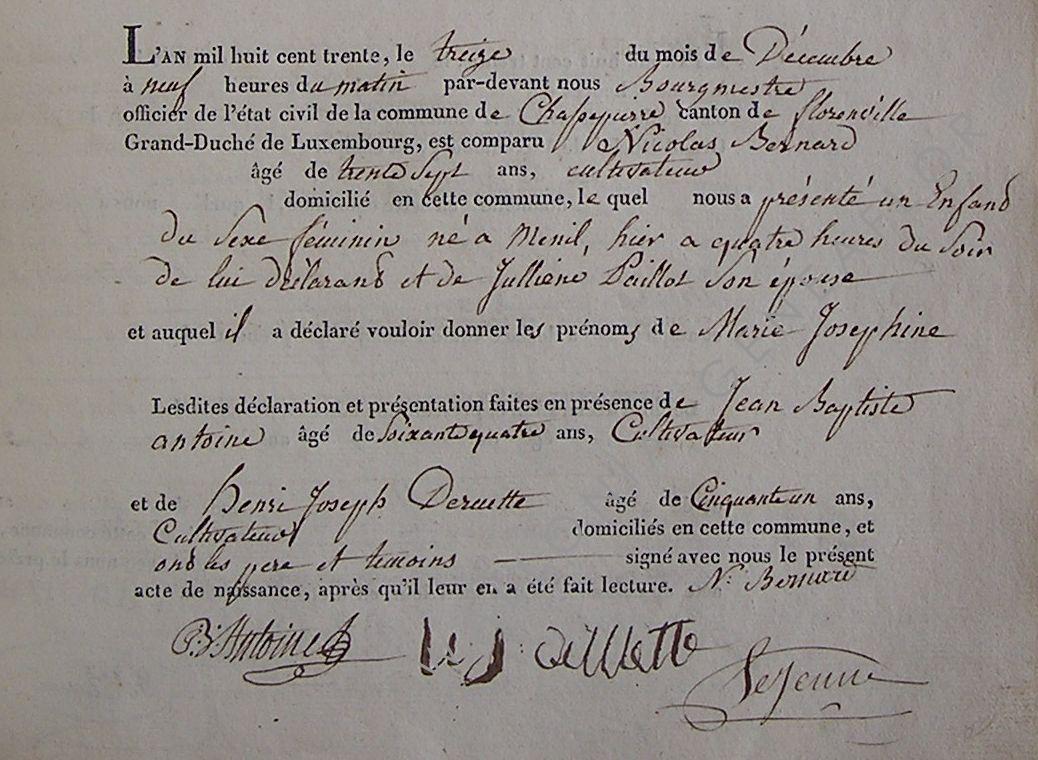 L'AN mil huit cent trente, le treize du mois de Décembre
à neuf heures du matin par-devant nous Bourgmestre
officier de l'état civil de la commune de Chassepierre canton de florenville
Grand-Duché de Luxembourg, est comparu Nicolas Bernard
âgé de trente Sept ans, cultivateur
domicilié en cette commune, le quel nous a présenté un Enfant
du Sexe féminin né a Menil, hier a quatre heures du Soir
de lui déclarant et de Julliène Paillot Son épouse
et auquel il a déclaré vouloir donner les prénoms de Marie Josephine
Lesdites déclaration et présentation faites en présence de Jean Baptiste
antoine âgé de Soixante quatre ans, Cultivateur
et de Henri Joseph Deruette âgé de Cinquante un ans,
Cultivateur domiciliés en cette commune, et
ont les pere et temoins signé avec nous le présent
acte de naissance, après qu'il leur en a été fait lecture. N. Bernard
Antoine
LeJeune